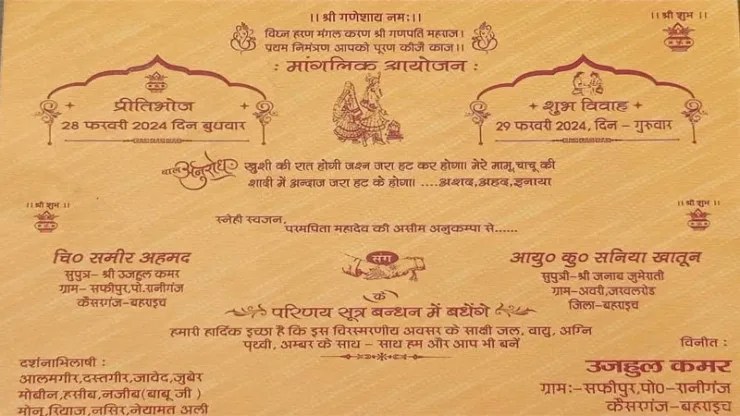 ।। श्री गणेशाय नमः।।
।। श्री शुभ ।।
विघ्न हरण मंगल करण श्री गणपति महाराज।
प्रथम निमंत्रण आपको पूरण कीजै काज।।
: मांगलिक आयोजन :
प्रीतिभोज
28 फरवरी 2024 दिन बुधवार
शुभ विवाह
29 फरवरी 2024, दिन – गुरुवार
बाल अनुरोध
खुशी की रात होणी जश्न जरा हट कर होणा। मेरे मामू, चाचू की
शादी में अन्दाज जरा हट के होणा। ....अशद,अहद,इनाया
।। श्री शुभ ।।
।। श्री शुभ ।।
स्नेही स्वजन,
परमपिता महादेव की असीम अनुकम्पा से......
चि० समीर अहमद
सुपुत्र– श्री उजहुल कमर
ग्राम– सफीपुर,पो.रानीगंज
कैसरगंज–बहराइच
संग
आयु० कु० सनिया खातून
सुपुत्री–श्री जनाब जुमेराती
ग्राम–अवरी,जरवलरोड
जिला–बहराइच
के
परिणय सूत्र बन्धन में बधेंगे
हमारी हार्दिक इच्छा है कि इस विस्मरणीय अवसर के साक्षी जल, वायु, अग्नि
पृथ्वी, अम्बर के साथ – साथ हम और आप भी बनें
दर्शनाभिलाषी :
आलमगीर,दस्तगीर,जावेद,जुबेर
मोबीन,हसीब,नजीब(बाबू जी )
मोन,रियाज,नसिर,नेयामत अली
विनीत :
उजहुल कमर
ग्रामः–सफीपुर,पो०–रानीगंज
कैसरगंज–बहराइच